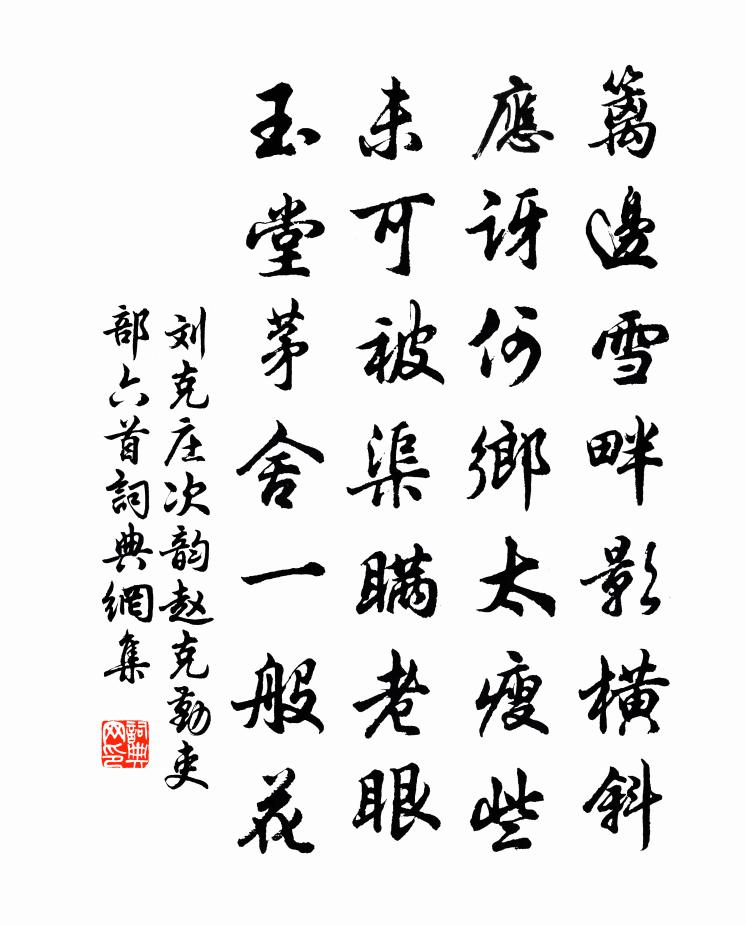 籬邊雪畔影橫斜
應訝何鄉太瘦些
未可被渠瞞老眼
玉堂茅舍一般花
刘克庄次韵赵克勤吏
部六首詞典網集
詞典网印